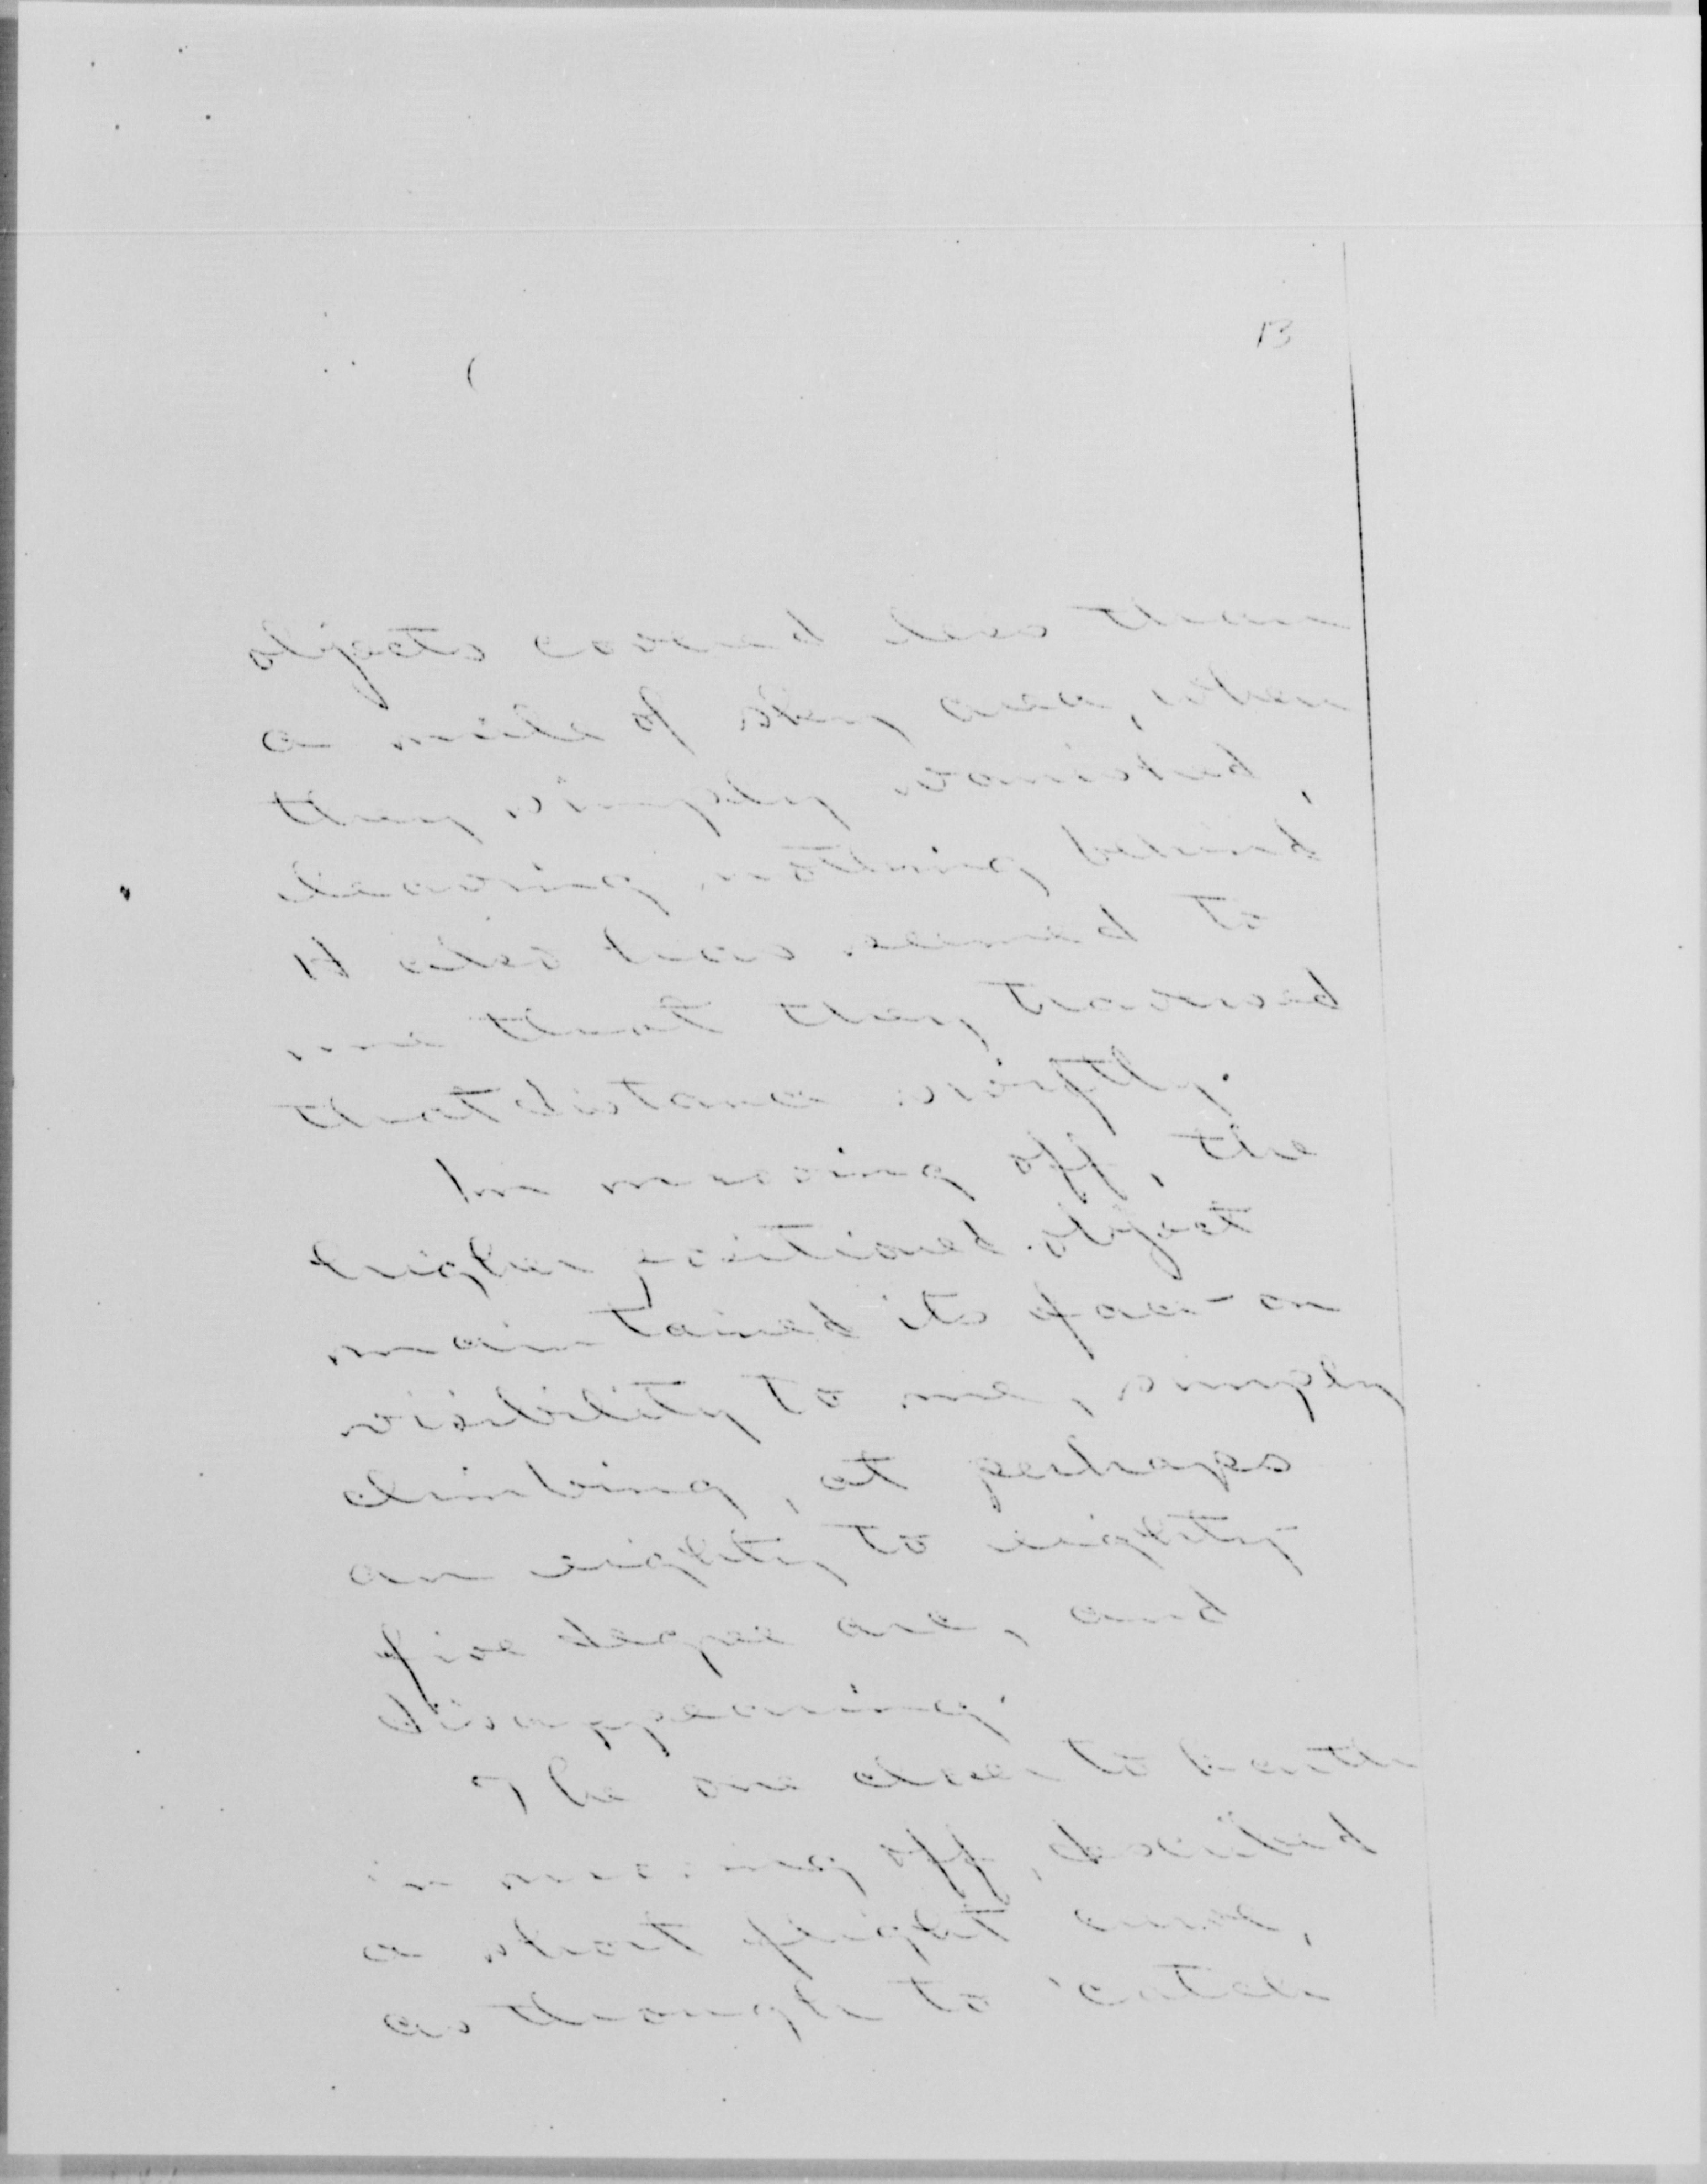 13
objects covered less than
a mile of sky area, when
they simply vanished,
leaving nothing behind
It also has seemed to
me that they traversed
that distance swiftly.
In moving off, the
higher positioned object
maintained its face-on
visibility to me, simply
climbing, at perhaps
an eighty to eighty
five degree arc, and
disappearing.
The one closer to Earth
in moving off, described
a short flight curve,
as though to 'catch